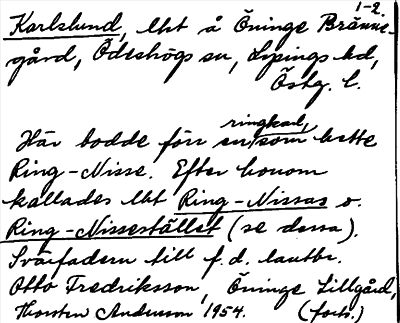 1-2.
Karlslund, lht å Öninge Bränne-
gård, Ödeshögs sn, Lysings hd,
Östg. l.
Här bodde förr en ringkarl, som hette
Ring-Nisse. Efter honom
kallades lht Ring-Nissas o.
Ring-Nissestället (se dessa).
Svärfadern till f.d. lantbr.
Otto Fredriksson, Öninge Lillgård,
Thorsten Andersson 1954. (forts.)